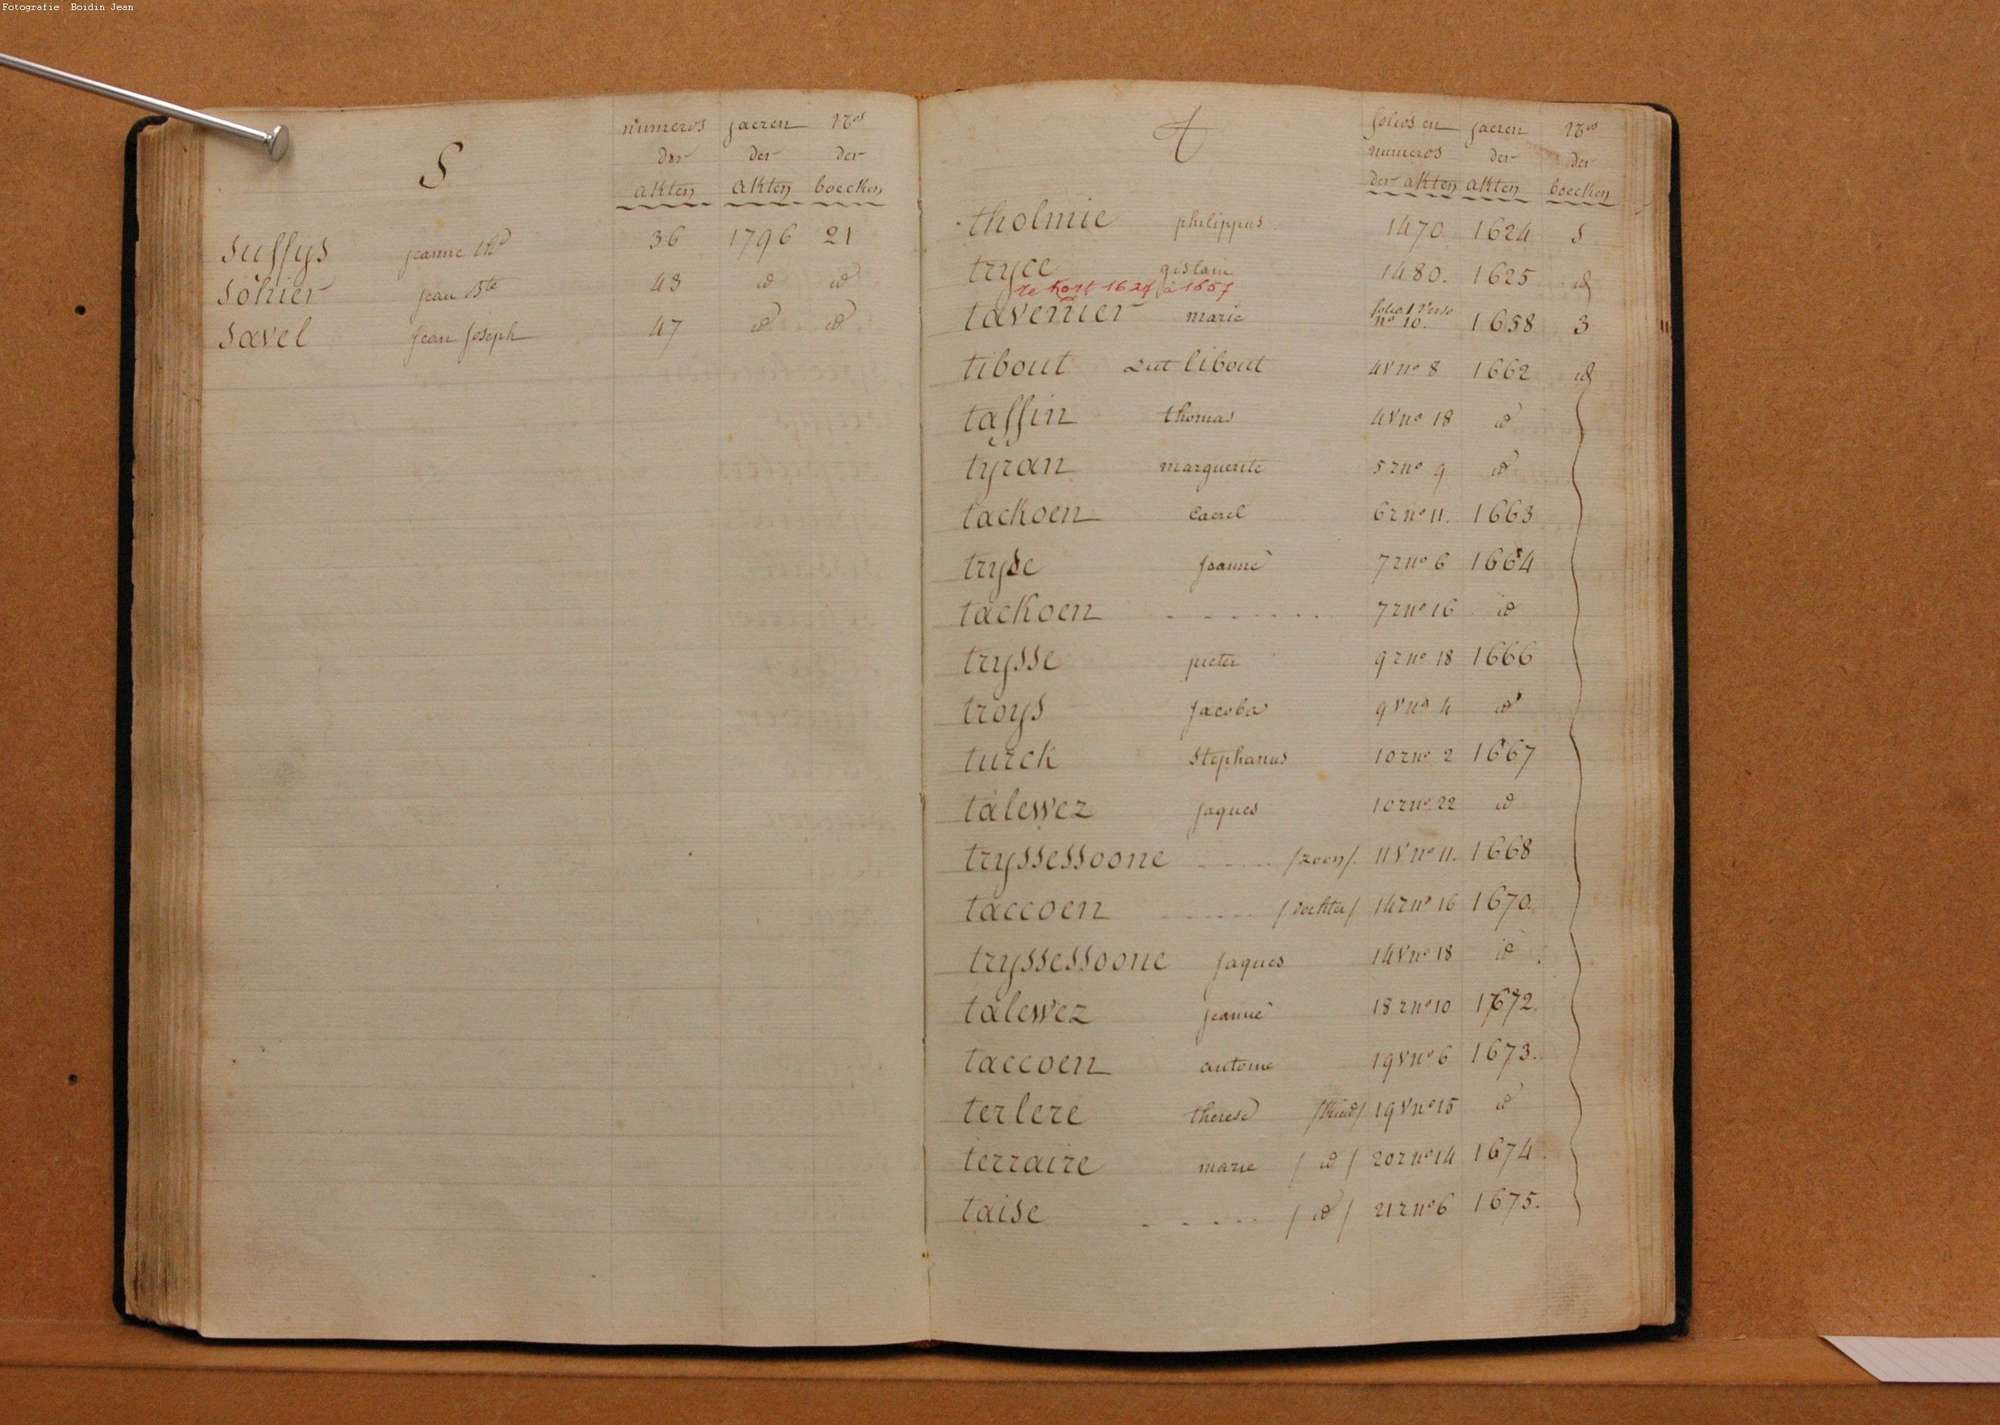 Fotografie Boidin Jean
S
numeros der akten jaeren der akten Nos der boecken
suffys jeanne thd 36 1796 21
sohier jean Bte 43 id id
savel jean joseph 47 id id
t
folios en numeros der akten jaeren der akten Nos der boecken
tholmie philippus 1470 1624 S
tryce gislain 1480. 1625 id
te kort 1627 à 1657
tavernier marie folio 1 verso no 10. 1658 3
tibout Dit libout 4v no 8 1662 id
taffin thomas 4v no 18 id
tyran marguerite 5 r no 9 id
tackoen Caerel 6 r no 11. 1663
tryse Jeanne 7 r no 6 1664
tackoen 7 r no 16 id
trysse pieter 9 r no 18 1666
troys Jacoba 9 v no 4 id
turck Stephanus 10 r no 2 1667
talewez Jaques 10 r no 22 id
tryssessoone /zoon/ 11 v no 11. 1668
taccoen /dochter/ 14 r no 16 1670.
tryssessoone Jaques 14 v no 18 id
talewez jeanne 18 r no 10 1672.
taccoen antoine 19 v no 6 1673.
terlere therese /kind/ 19 v no 15 id
terraire marie / id / 20 r no 14 1674.
taise / id / 21 r no 6 1675.